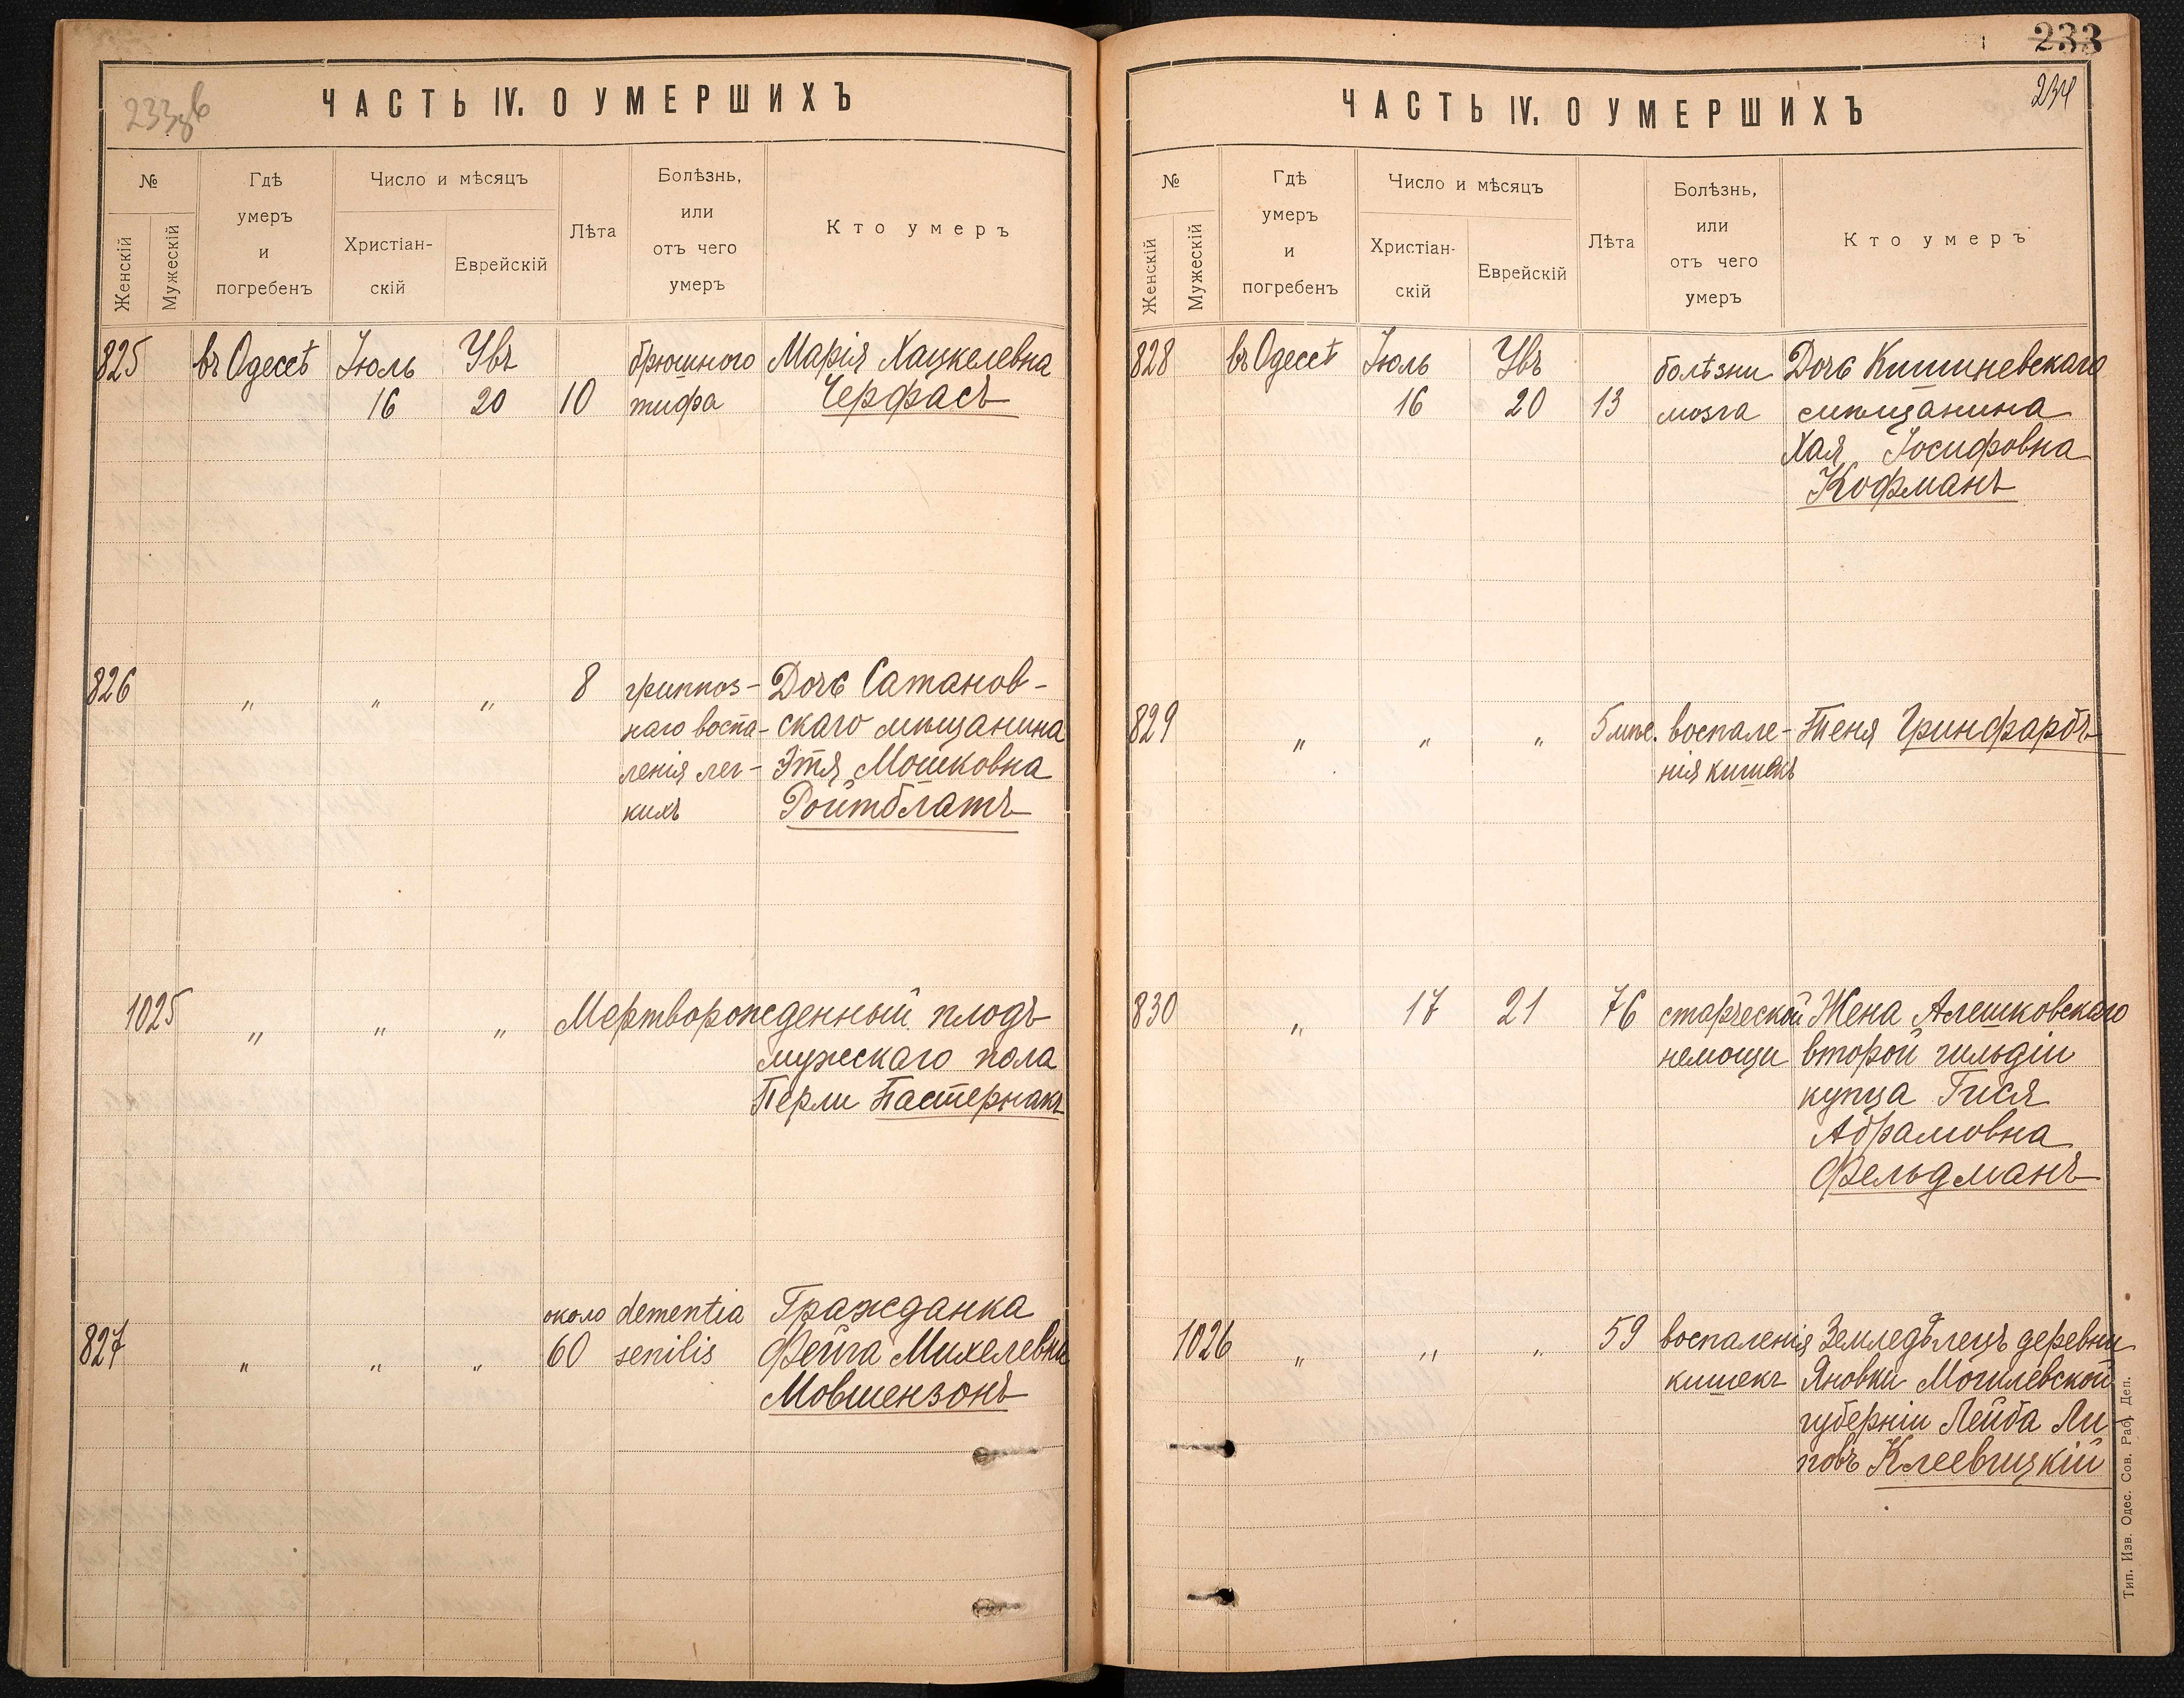 233об
ЧАСТЬ IV. О УМЕРШИХЪ
№
Женскій
Мужескій
Гдѣ
умеръ
и
погребенъ
Число и мѣсяцъ
Христіан-
скій
Еврейскій
Лѣта
Болѣзнь,
или
отъ чего
умеръ
Кто умеръ
825 въ Одессѣ Іюль Увъ брюшного Марія Хацкелевна
16 20 10 тифа Черфасъ
826 " " " 8 гриппоз- Дочь Сатанов-
наго воспа- скаго мѣщанина
ленія лег- Этя Мошковна
кихъ Ройтблатъ
1025 " " " Мертворожденный плодъ
мужескаго пола
Перли Пастернакъ
около dementia Гражданка
827 " " " 60 senilis Фейга Михелевна
Мовшензонъ
233
234
ЧАСТЬ IV. О УМЕРШИХЪ
№
Женскій
Мужескій
Гдѣ
умеръ
и
погребенъ
Число и мѣсяцъ
Христіан-
скій
Еврейскій
Лѣта
Болѣзнь,
или
отъ чего
умеръ
Кто умеръ
828 въ Одессѣ Іюль Увъ болѣзни Дочь Кишиневскаго
16 20 13 мозга мѣщанина
Хая Іосифовна
Кофманъ
829 " " " 5 мѣс. воспале- Теня Гринфарбъ
нія кишекъ
830 " 17 21 76 старческой Жена Алешковскаго
немощи второй гильдіи
купца Гися
Абрамовна
Фельдманъ
1026 " " " 59 воспаленія Земледѣлецъ деревни
кишекъ Яновки Могилевской
губерніи Лейба Ли-
повъ Клеевицкій
Тип. Изв. Одес. Сов. Раб. Деп.